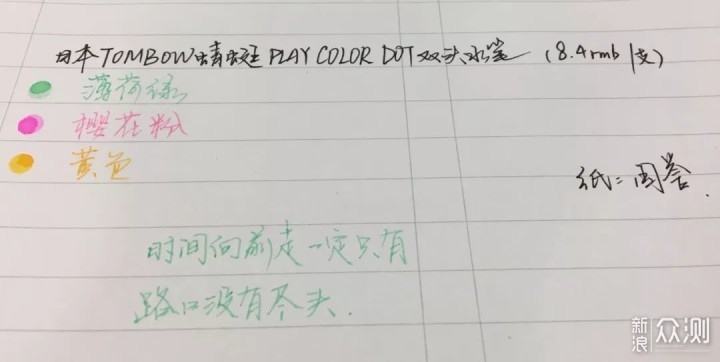 日本TOMBOW蜻蜓 PLAY COLOR DOT双头水笔 (8.4rmb/支)
薄荷绿
樱花粉
黄色
纸:国誉.
时间向前走一定只有
路口没有尽头.
新浪众测